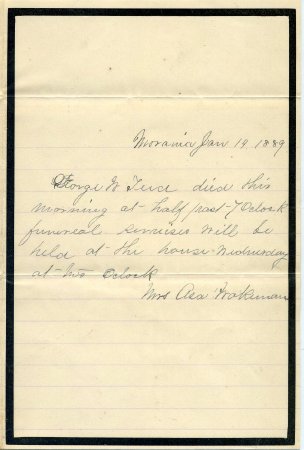 Moravia Jan 19 1889
George W died this
morning at half past 7 Oclock
funereal serveises will be
held at the house Wednesday
at two Oclock
Mrs Asa Wakeman